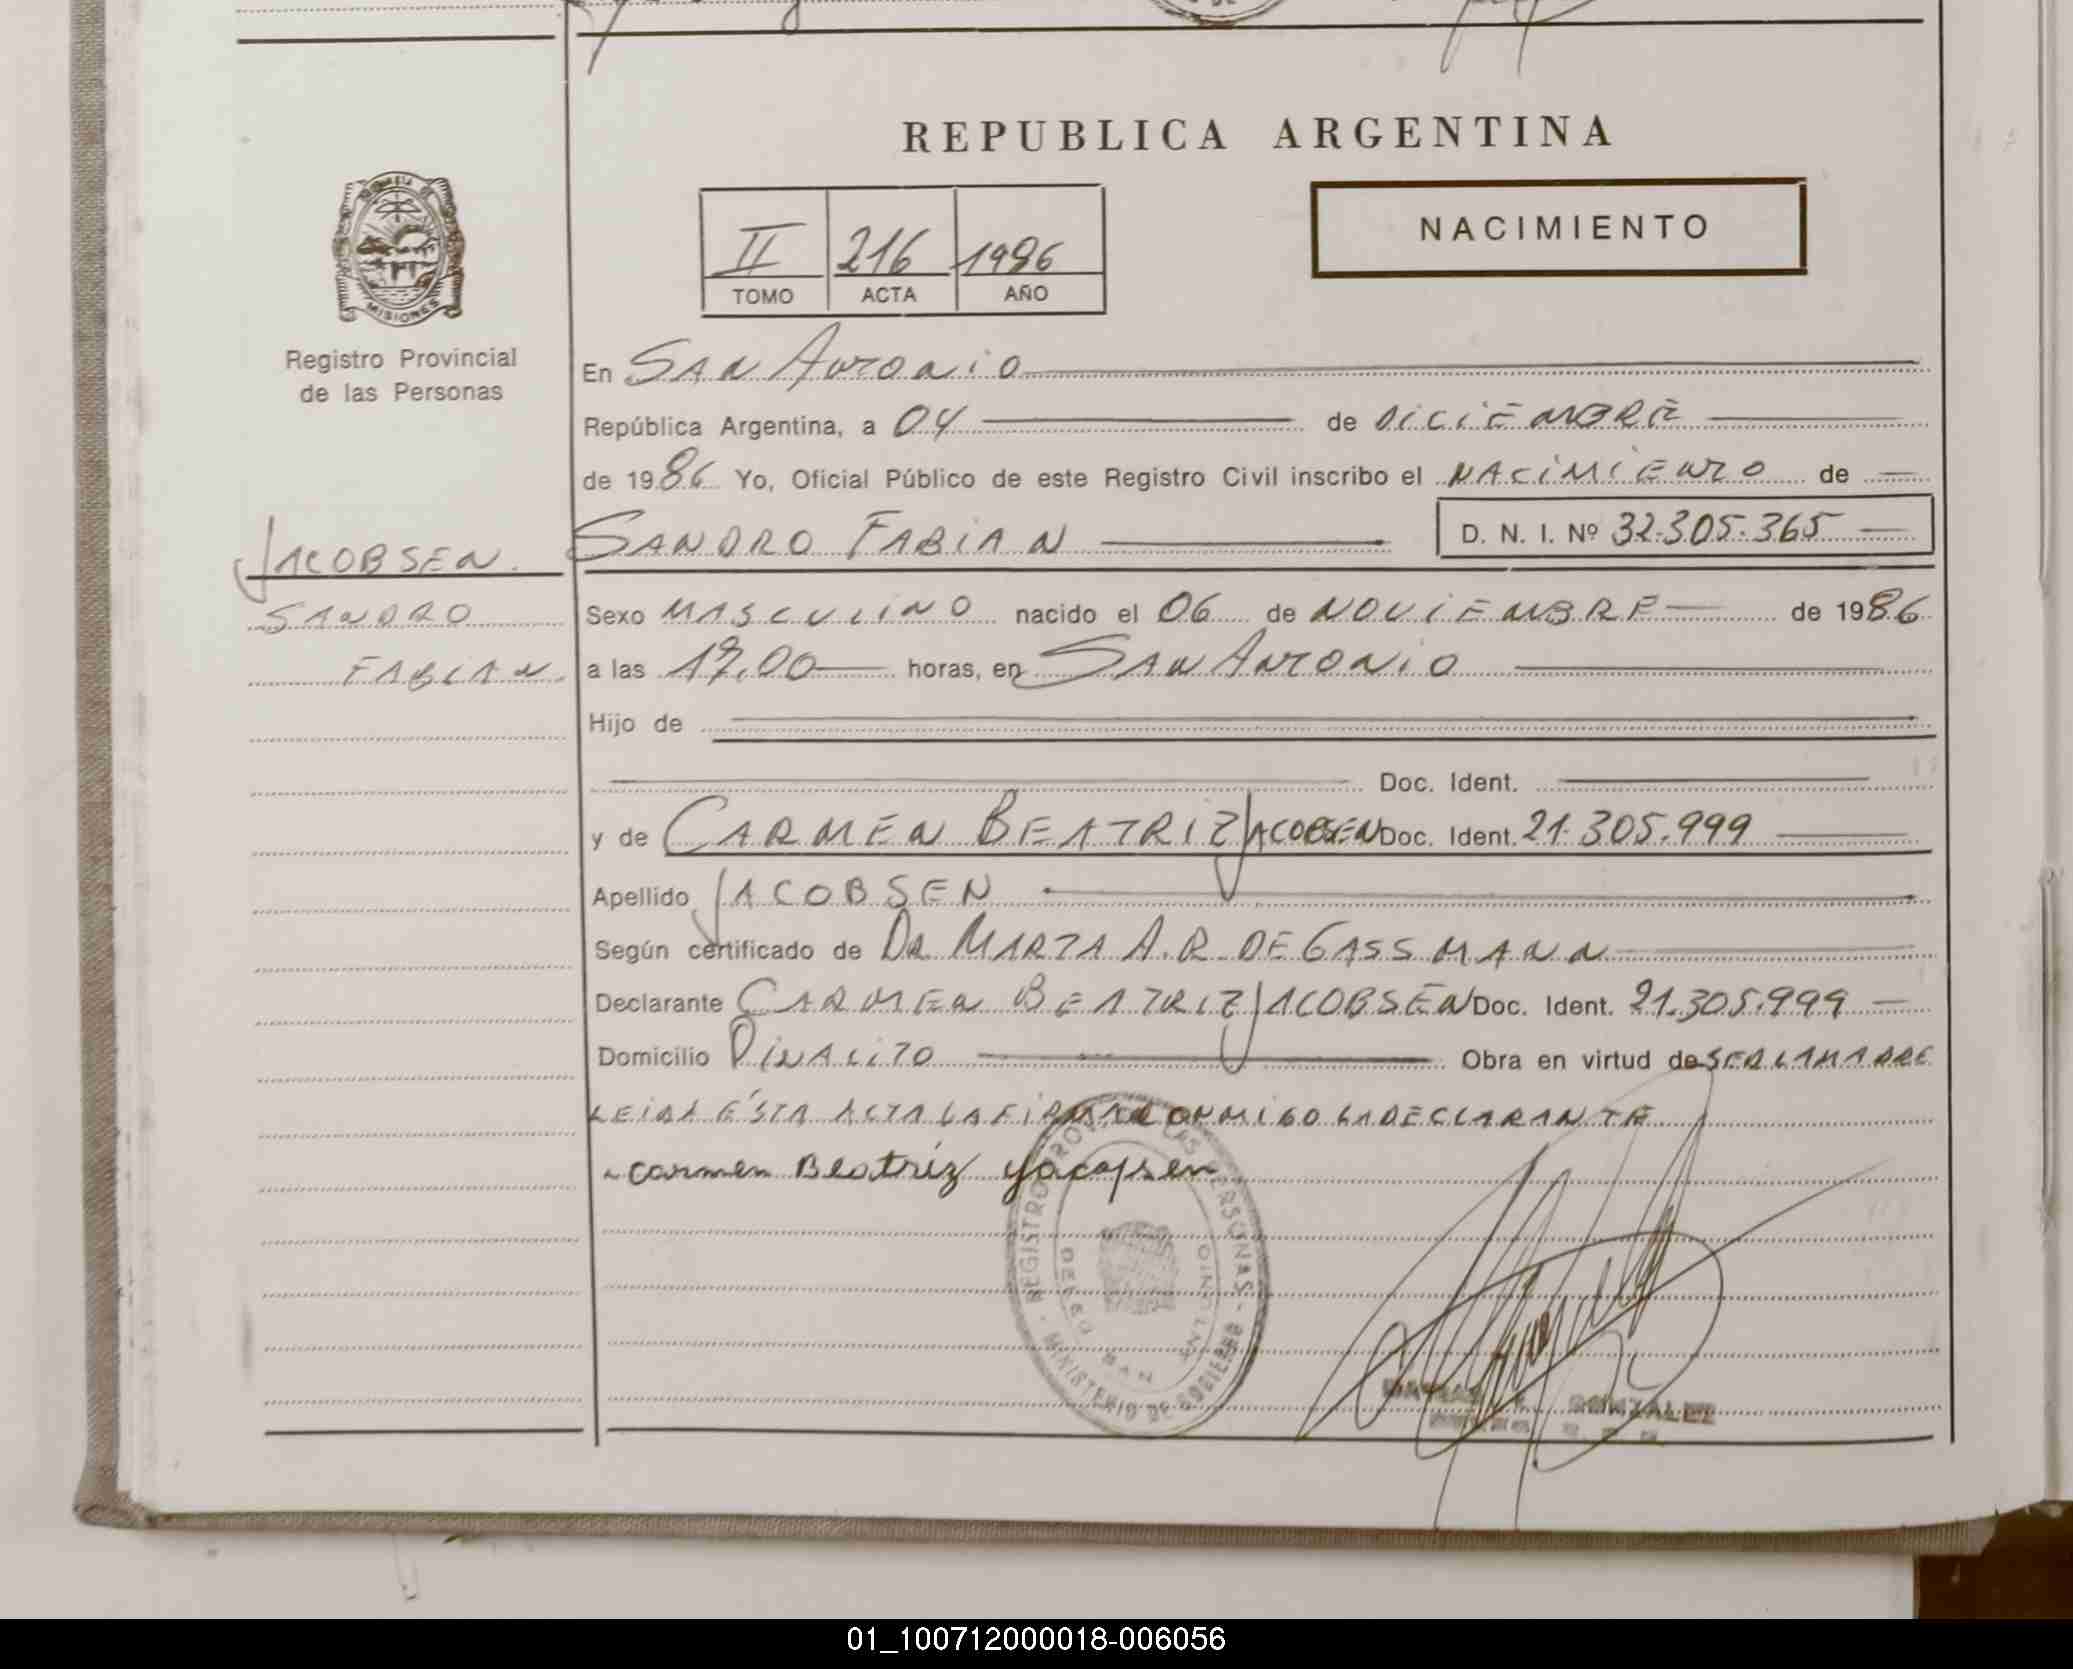 REPUBLICA ARGENTINA
II 216 1986
TOMO ACTA AÑO
NACIMIENTO
MISIONES
Registro Provincial
de las Personas
En SAN ANTONIO
República Argentina, a 04 de DICIEMBRE
de 1986 Yo, Oficial Público de este Registro Civil inscribo el NACIMIENTO de
JACOBSEN.
SANDRO FABIAN D. N. I. Nº 32.305.365
SANDRO
FABIAN.
Sexo MASCULINO nacido el 06 de NOVIEMBRE de 1986
a las 17,00 horas, en SAN ANTONIO
Hijo de
Doc. Ident.
y de CARMEN BEATRIZ JACOBSEN Doc. Ident. 21.305.999
Apellido JACOBSEN
Según certificado de DRA. MARTA A. R. DE GASSMANN
Declarante CARMEN BEATRIZ JACOBSEN Doc. Ident. 21.305.999
Domicilio PINALITO Obra en virtud de SER LA MADRE
LEIDA ÉSTA ACTA LA FIRMA CONMIGO LA DECLARANTE
carmen Beatriz yacopsen
REGISTRO PROV. LAS PERSONAS - MINISTERIO DE GOBIERNO
SAN
GONZALEZ
01_100712000018-006056